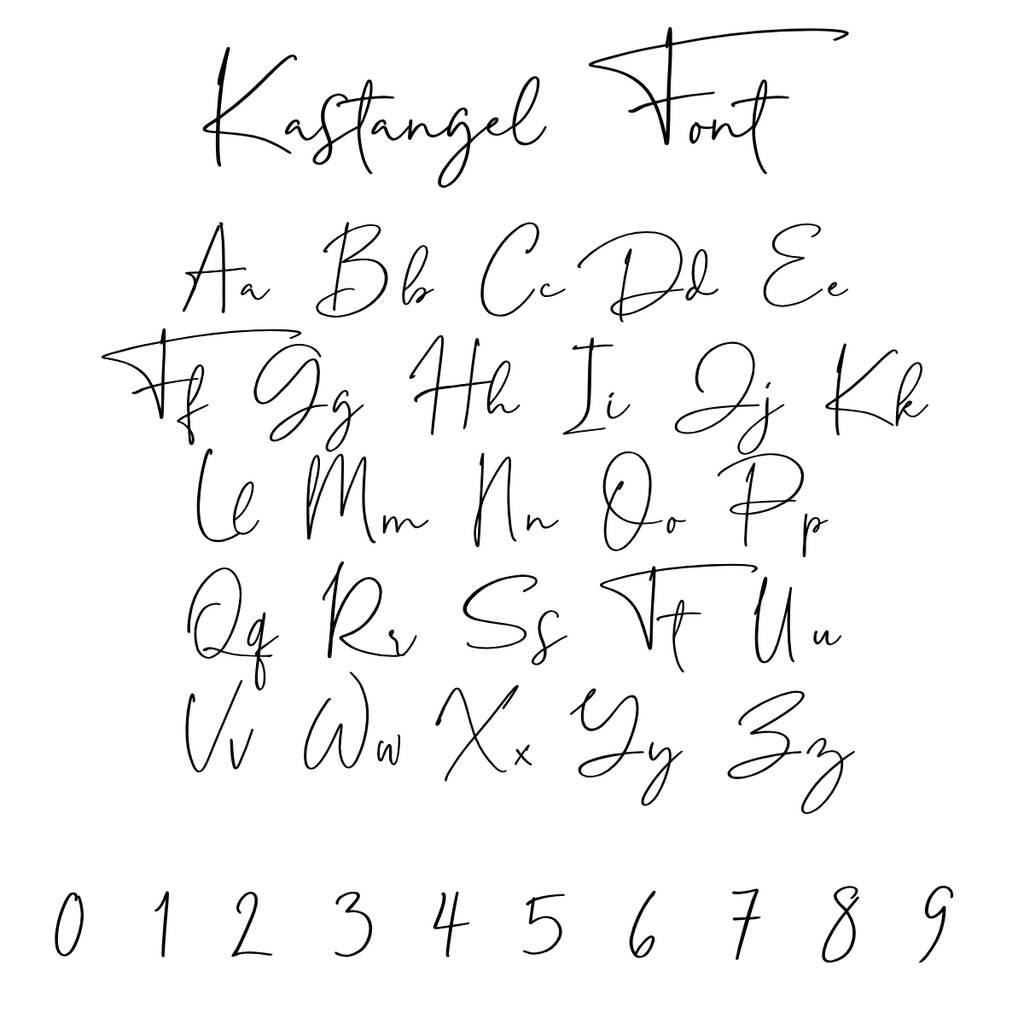 Kastangel Font
Aa Bb Cc Dd Ee
Ff Gg Hh Ii Jj Kk
Ll Mm Nn Oo Pp
Qq Rr Ss Tt Uu
Vv Ww Xx Yy Zz
0 1 2 3 4 5 6 7 8 9